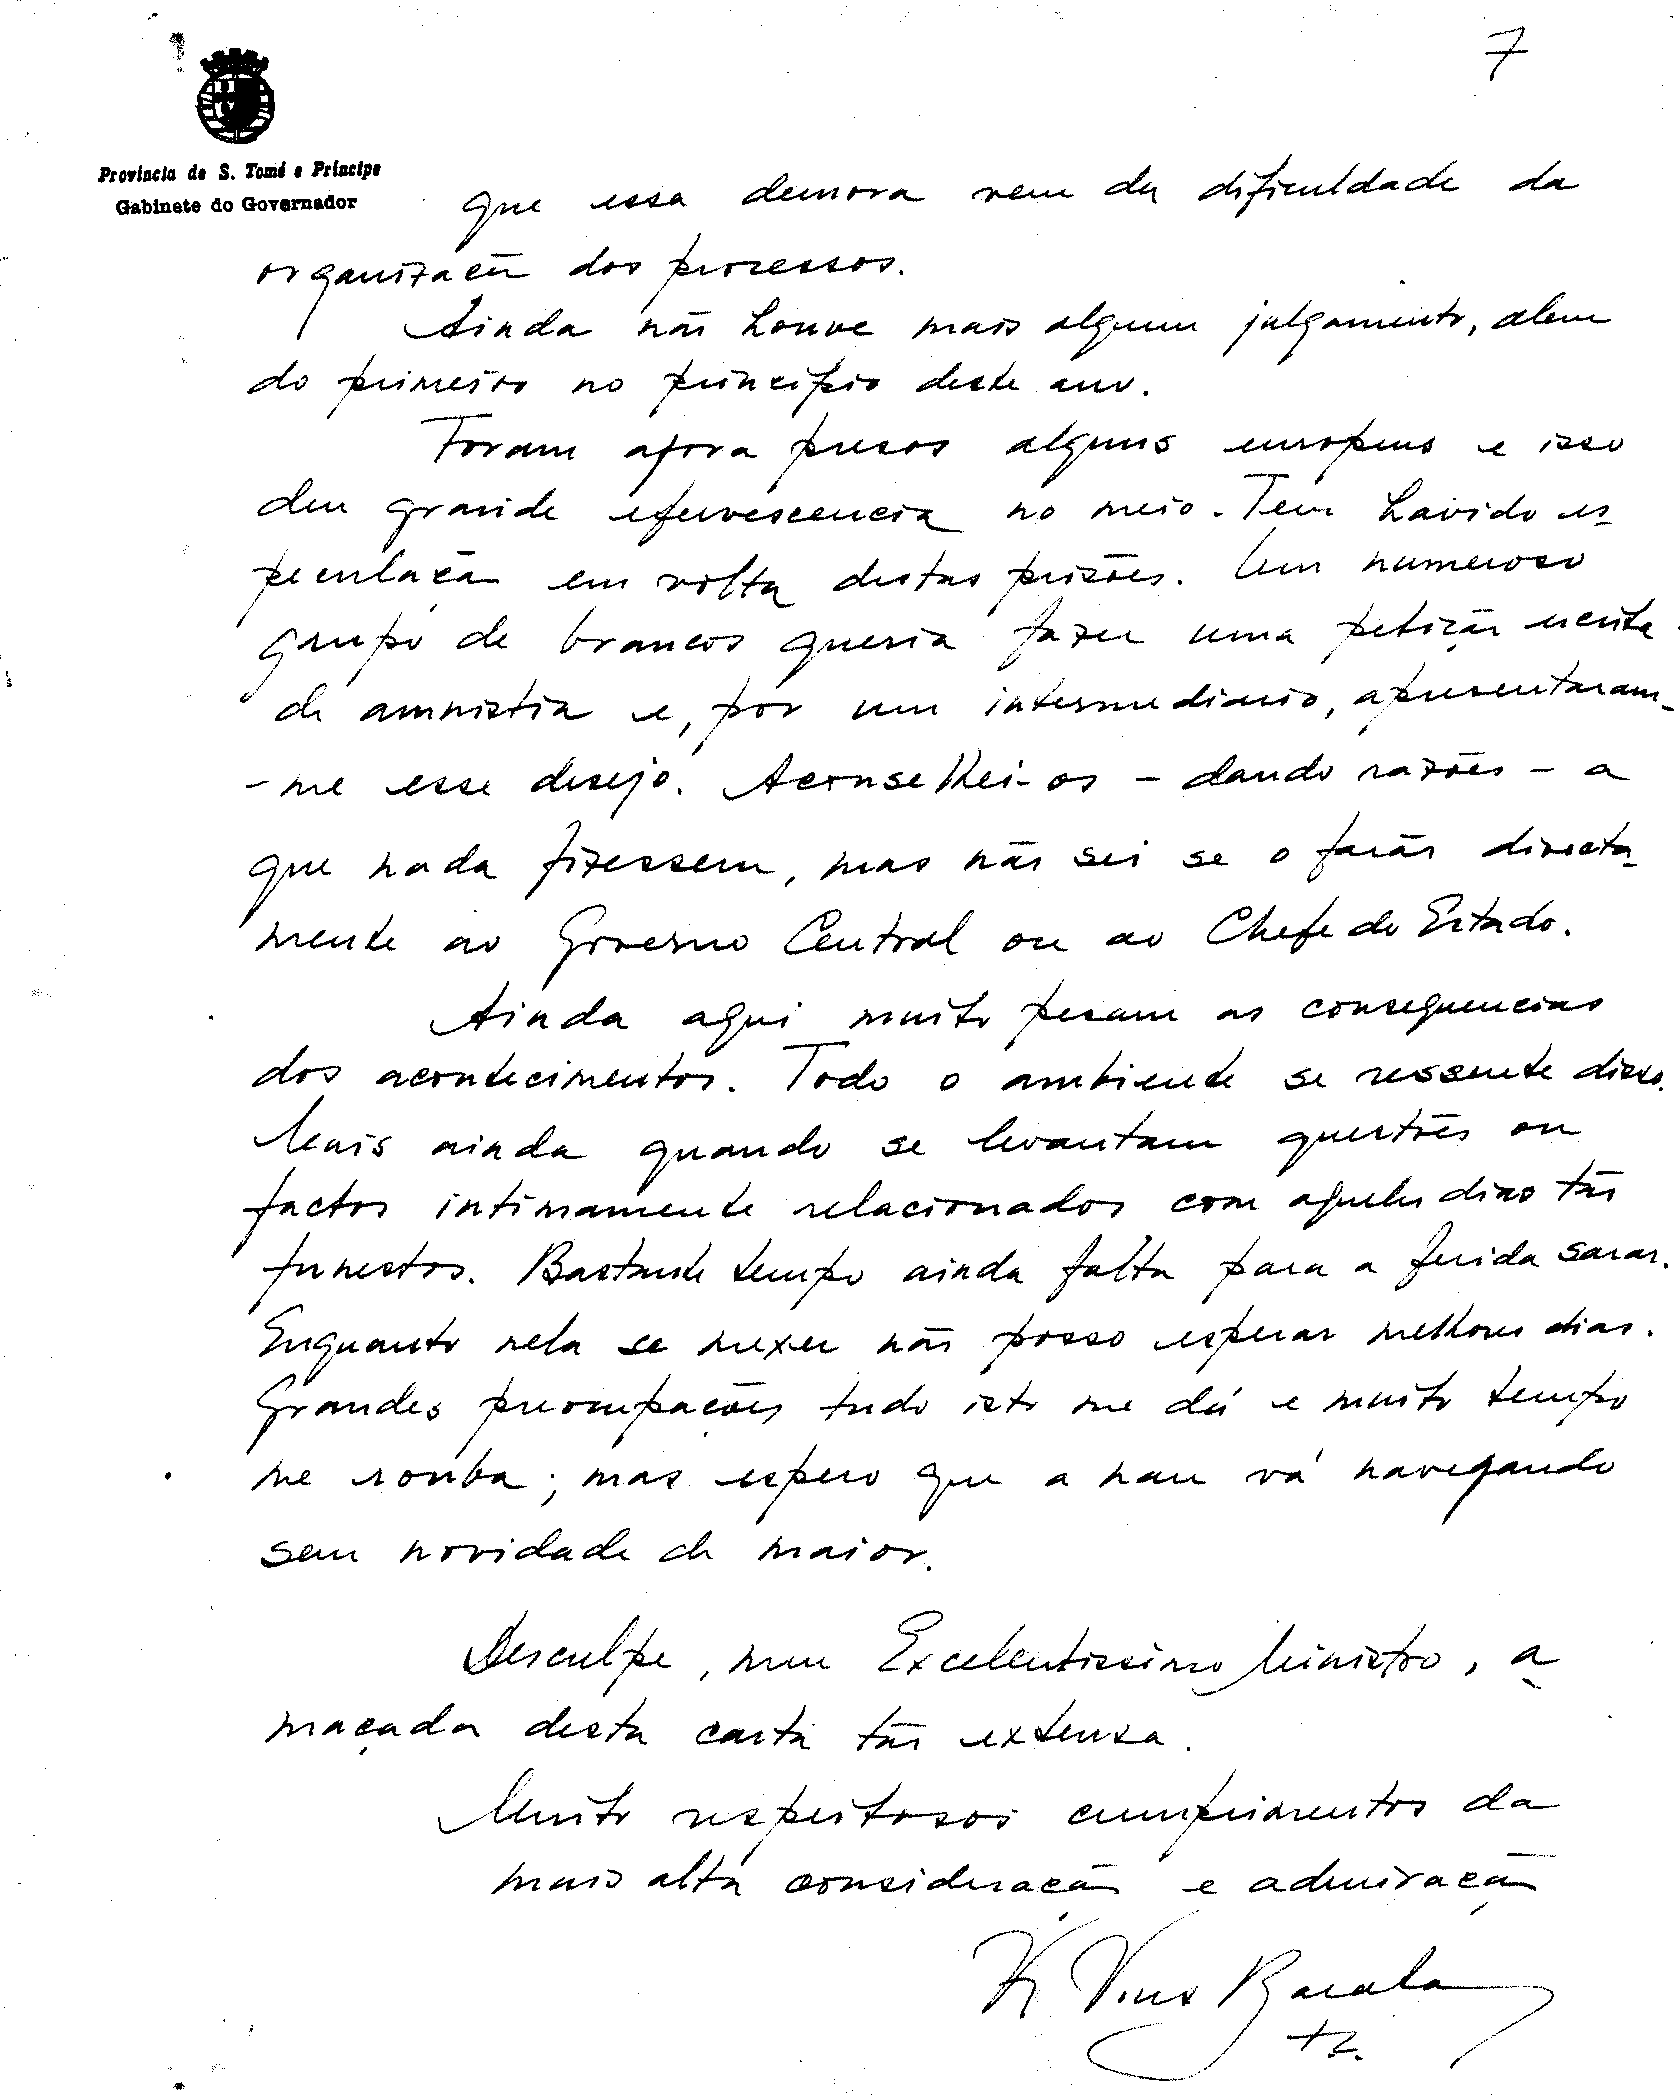 7
Província de S. Tomé e Príncipe
Gabinete do Governador
que essa demora vem da dificuldade da
organização dos processos.
Ainda não houve mais algum julgamento, alem
do primeiro no princípio deste ano.
Foram agora presos alguns europeus e isso
deu grande efervescencia no meio. Tem havido es-
peculação em volta destas prisões. Um numeroso
grupo de brancos queria fazer uma petição escrita
de amnistia e, por um intermediario, apresentaram-
-me esse desejo. Aconselhei-os - dando razões - a
que nada fizessem, mas não sei se o farão directa-
mente ao Governo Central ou ao Chefe do Estado.
Ainda aqui muito pesam as consequencias
dos acontecimentos. Todo o ambiente se ressente disso.
Mais ainda quando se levantam questões ou
factos intimamente relacionados com aqueles dias tão
funestos. Bastante tempo ainda falta para a ferida sarar.
Enquanto nela se mexer não posso esperar melhores dias.
Grandes preocupações tudo isto me dá e muito tempo
me rouba; mas espero que a nau vá navegando
sem novidade de maior.
Desculpe, meu Excelentissimo Ministro, a
maçada desta carta tão extensa.
Muito respeitosos cumprimentos da
mais alta consideração e admiração